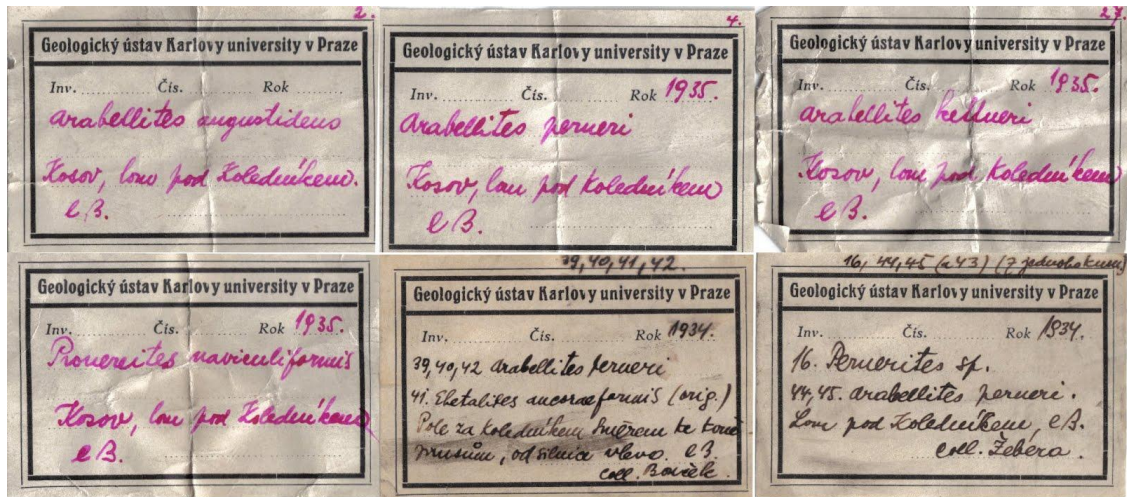 2.
Geologický ústav Karlovy university v Praze
Inv. Čís. Rok
arabellites augustidens
Kosov, lom pod Koledníkem.
eβ.
4.
Geologický ústav Karlovy university v Praze
Inv. Čís. Rok 1935.
Arabellites perneri
Kosov, lom pod Koledníkem
eβ.
27.
Geologický ústav Karlovy university v Praze
Inv. Čís. Rok 1935.
arabellites kettneri
Kosov, lom pod Koledníkem
eβ.
Geologický ústav Karlovy university v Praze
Inv. Čís. Rok 1935.
naviculiformis
Kosov, lom pod Koledníkem
eβ.
39, 40, 41, 42.
Geologický ústav Karlovy university v Praze
Inv. Čís. Rok 1934.
39, 40, 42 arabellites perneri
41. ancoraeformis (orig.)
Pole za Koledníkem směrem ke Koně-
prusům, od silnice vlevo. eβ.
coll. Bouček.
16, 44, 45 (a 43) (7 jednoho kusu)
Geologický ústav Karlovy university v Praze
Inv. Čís. Rok 1934.
16. Pernerites sp.
44, 45. arabellites perneri.
Lom pod Koledníkem, eβ.
coll. Žebera.